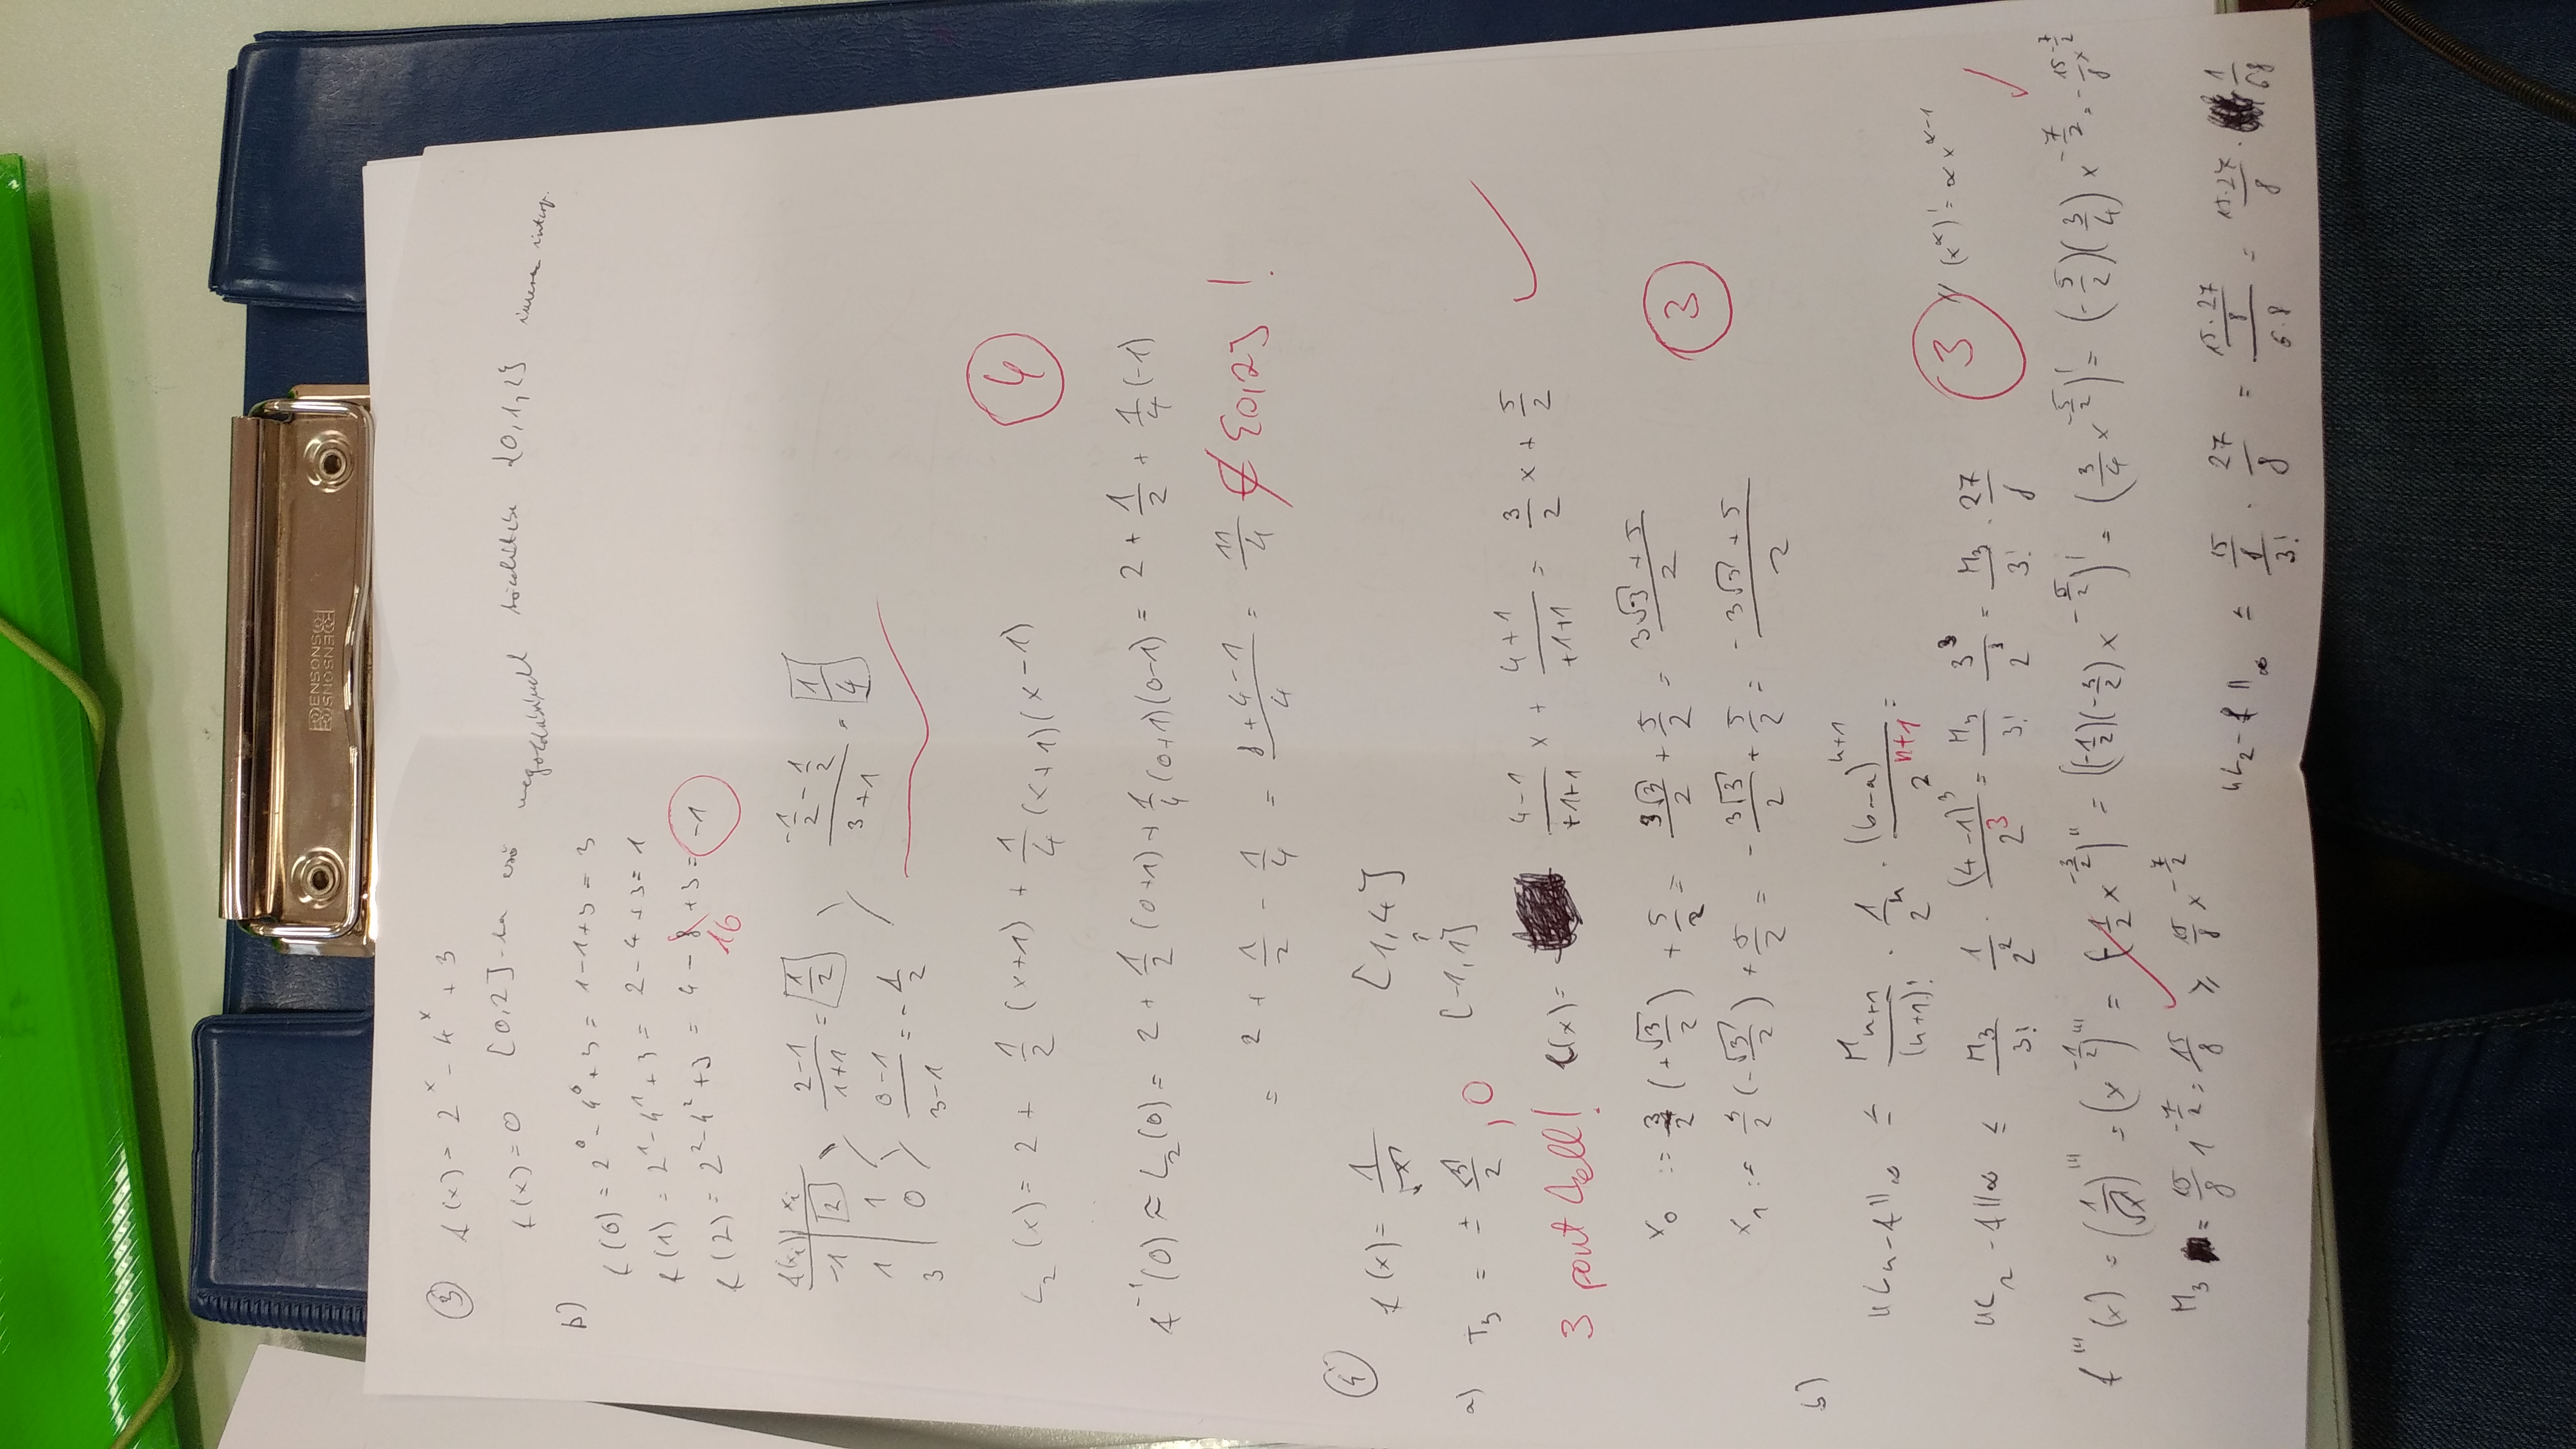 BENSONS
BENSONS
③ f(x) = 2^x - 4^x + 3
f(x) = 0 [0,2]-ba eső megoldásának közelítése {0,1,2} inverz interp.
b)
f(0) = 2^0 - 4^0 + 3 = 1-1+3 = 3
f(1) = 2^1 - 4^1 + 3 = 2-4+3 = 1
f(2) = 2^2 - 4^2 + 3 = 4 - 8 + 3 = -1
16
f(x_i) | x_i
-1 | 2 (2-1)/(1+1) = 1/2 (-1/2 - 1/2)/(3+1) = 1/4
1 | 1 (0-1)/(3-1) = -1/2
3 | 0
L_2(x) = 2 + 1/2 (x+1) + 1/4 (x+1)(x-1)
4
f^-1(0) ≈ L_2(0) = 2 + 1/2 (0+1) + 1/4 (0+1)(0-1) = 2 + 1/2 + 1/4 (-1)
= 2 + 1/2 - 1/4 = (8+4-1)/4 = 11/4 ∉ [0,2] !
④ f(x) = 1/√x [1,4]
↑
a) T_3 = ± √3/2 , 0 [-1,1]
3 pont kell! ℓ(x) = (4-1)/(+1+1) x + (4+1)/(+1+1) = 3/2 x + 5/2
x_0 := 3/2 (+√3/2) + 5/2 = 3√3/2 + 5/2 = (3√3 + 5)/2
3
x_1 := 3/2 (-√3/2) + 5/2 = - 3√3/2 + 5/2 = (-3√3 + 5)/2
b)
||L_n - f||_∞ ≤ M_{n+1}/(n+1)! · 1/2^n · (b-a)^{n+1}/2^{n+1} =
3 // (x^α)' = αx^{α-1}
||L_2 - f||_∞ ≤ M_3/3! 1/2^2 · (4-1)^3/2^3 = M_3/3! 3^3/2^3 = M_3/3! · 27/8
f'''(x) = (1/√x)''' = (x^{-1/2})''' = (-1/2 x^{-3/2})'' = ((-1/2)(-3/2) x^{-5/2})' = (3/4 x^{-5/2})' = (-5/2)(3/4) x^{-7/2} = -15/8 x^{-7/2}
M_3 = 15/8 1^{-7/2} = 15/8 ≥ 15/8 x^{-7/2}
||L_2 - f||_∞ ≤ (15/8)/3! · 27/8 = (15·27/8)/(6·8) = 15·27/8 · 1/68